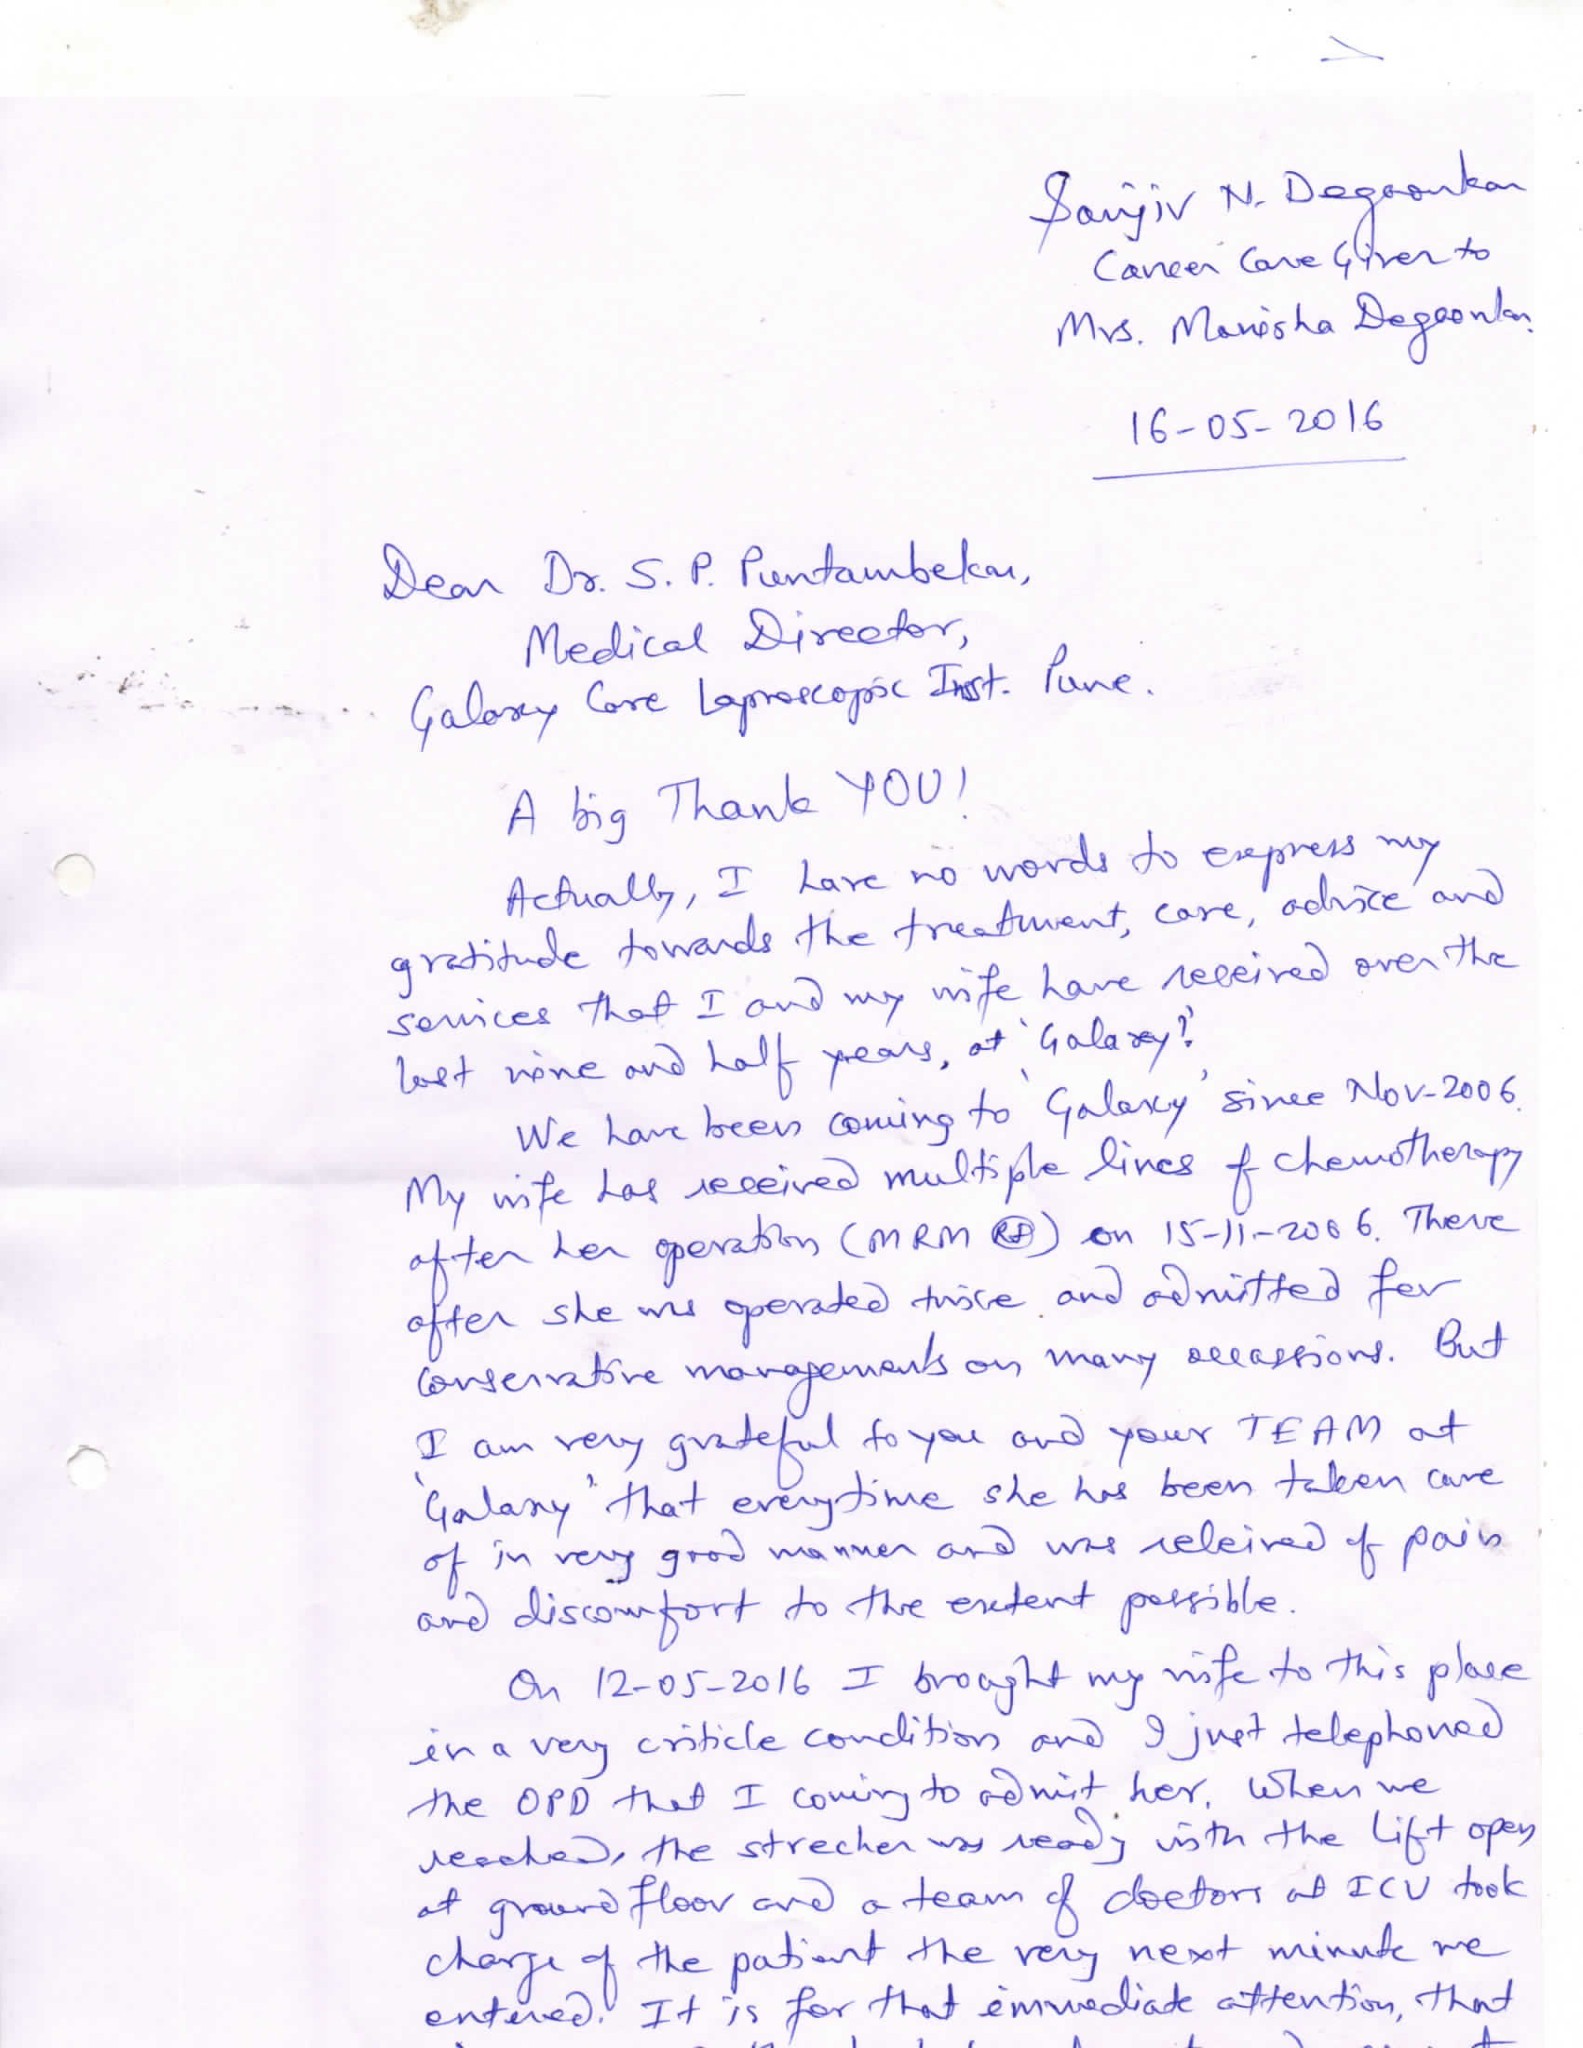 Sanjiv N. Degaonkar
Cancer Care Giver to
Mrs. Manisha Degaonkar.
16-05-2016
Dear Dr. S. P. Puntambekar,
Medical Director,
Galaxy Care Laproscopic Inst. Pune.
A big Thank YOU!
Actually, I have no words to express my
gratitude towards the treatment, care, advice and
services that I and my wife have received over the
last nine and half years, at 'Galaxy'.
We have been coming to 'Galaxy' since Nov-2006.
My wife has received multiple lines of chemotherapy
after her operation (MRM Rt) on 15-11-2006. There
after she was operated twice and admitted for
conservative managements on many occassions. But
I am very grateful to you and your TEAM at
'Galaxy' that everytime she has been taken care
of in very good manner and was releived of pain
and discomfort to the extent possible.
On 12-05-2016 I brought my wife to this place
in a very criticle condition and I just telephoned
the OPD that I coming to admit her. When we
reached, the strecher was ready with the Lift open
at ground floor and a team of doctors at ICU took
charge of the patient the very next minute we
entered. It is for that immediate attention, that